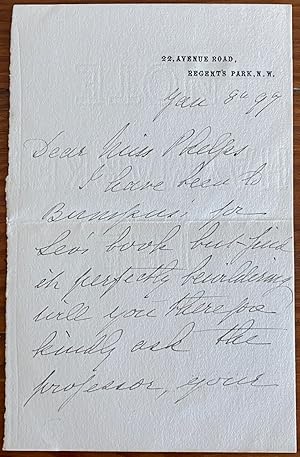 22, AVENUE ROAD,
REGENT'S PARK, N.W.
Jan 8th 97
Dear Miss Phelps
I have been to
for
Leo's book but find
it perfectly bewildering
will you therefore
kindly ask the
professor, your